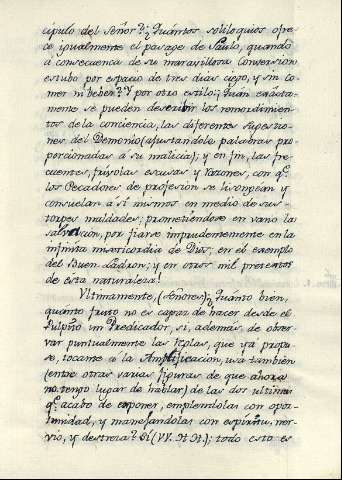 cipulo del Señor?¿Quántos soliloquios ofre
ce igualmente el pasage de Saulo, quando
á consecuencia de su maravillosa Conversion
estubo por espacio de tres dias ciego, y sin co
mer ni beber? Y por otro estilo;¡Quan exácta-
mente se pueden describir los remordimien
tos de la conciencia, las diferentes sugestio
nes del Demonio (ajustandole palabras pro
porcionadas á su malicia); y en fin, las fre
cuentes, frívolas escusas y razones, con q.e
los Pecadores de profesion se lisongean y
consuelan a sí mismos en medio de sus
torpes maldades; prometiendose en vano la
salvacion, por fiarse imprudentemente en la
infinita misericordia de Dios; en el exemplo
del Buen Ladron; y en otros mil pretextos
de esta naturaleza!
Ultimamente, (Señores)¿Quanto bien,
quanto fruto no es capaz de hacer desde el
Pulpito un Predicador, si, además de obser
var puntualmente las reglas, que yá propu
se, tocante á la Amplificacion, usa tambien
(entre otras varias figuras de que ahora
no tengo lugar de hablar) de las dos ultimas
q.e acabo de exponer, empleandolas con opor
tunidad, y manejandolas con espíritu, ner-
vio, y destreza? Sí (VV. HH.); todo esto es